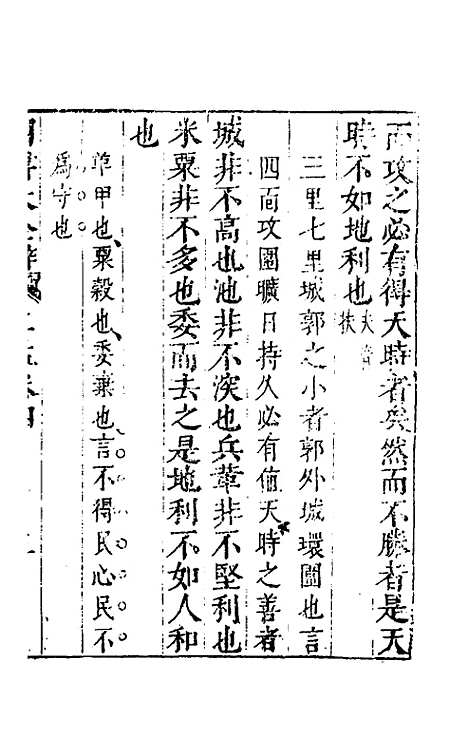 而攻之必有得天時者矣然而不勝者是天
時不如地利也夫音扶
三里七里城郭之小者郭外城環圍也言
四面攻圍曠日持久必有值天時之善者
城非不高也池非不深也兵革非不堅利也
米粟非不多也委而去之是地利不如人和
也
革甲也粟穀也委棄也言不得民心民不
為守也